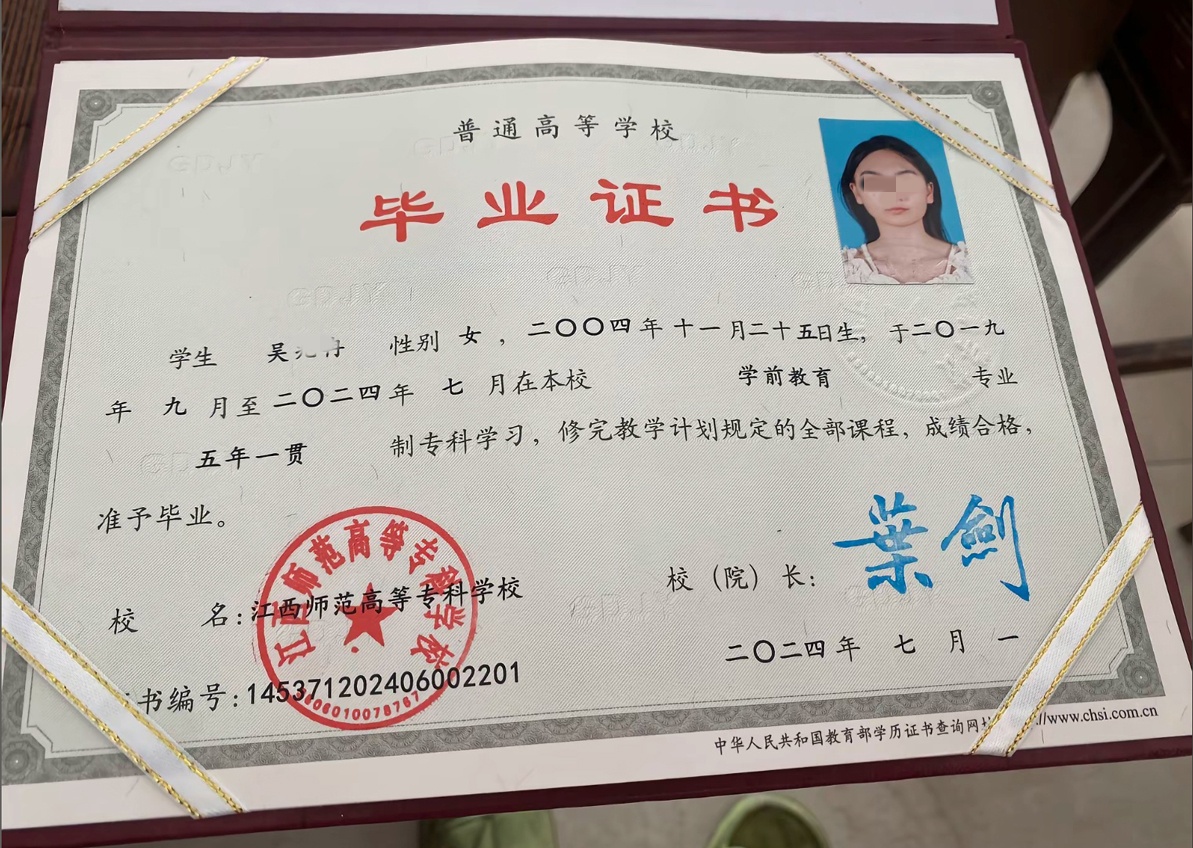 普通高等学校
毕业证书
学生 吴 性别 女，二〇〇四年十一月二十五日生，于二〇一九
年 九 月至二〇二四年 七 月在本校 学前教育 专业
五年一贯 制专科学习，修完教学计划规定的全部课程，成绩合格，
准予毕业。
校（院）长：葉劍
校 名：江西师范高等专科学校
江西师范高等专科学校
二〇二四年 七 月 一
书编号：145371202406002201
中华人民共和国教育部学历证书查询网 //www.chsi.com.cn